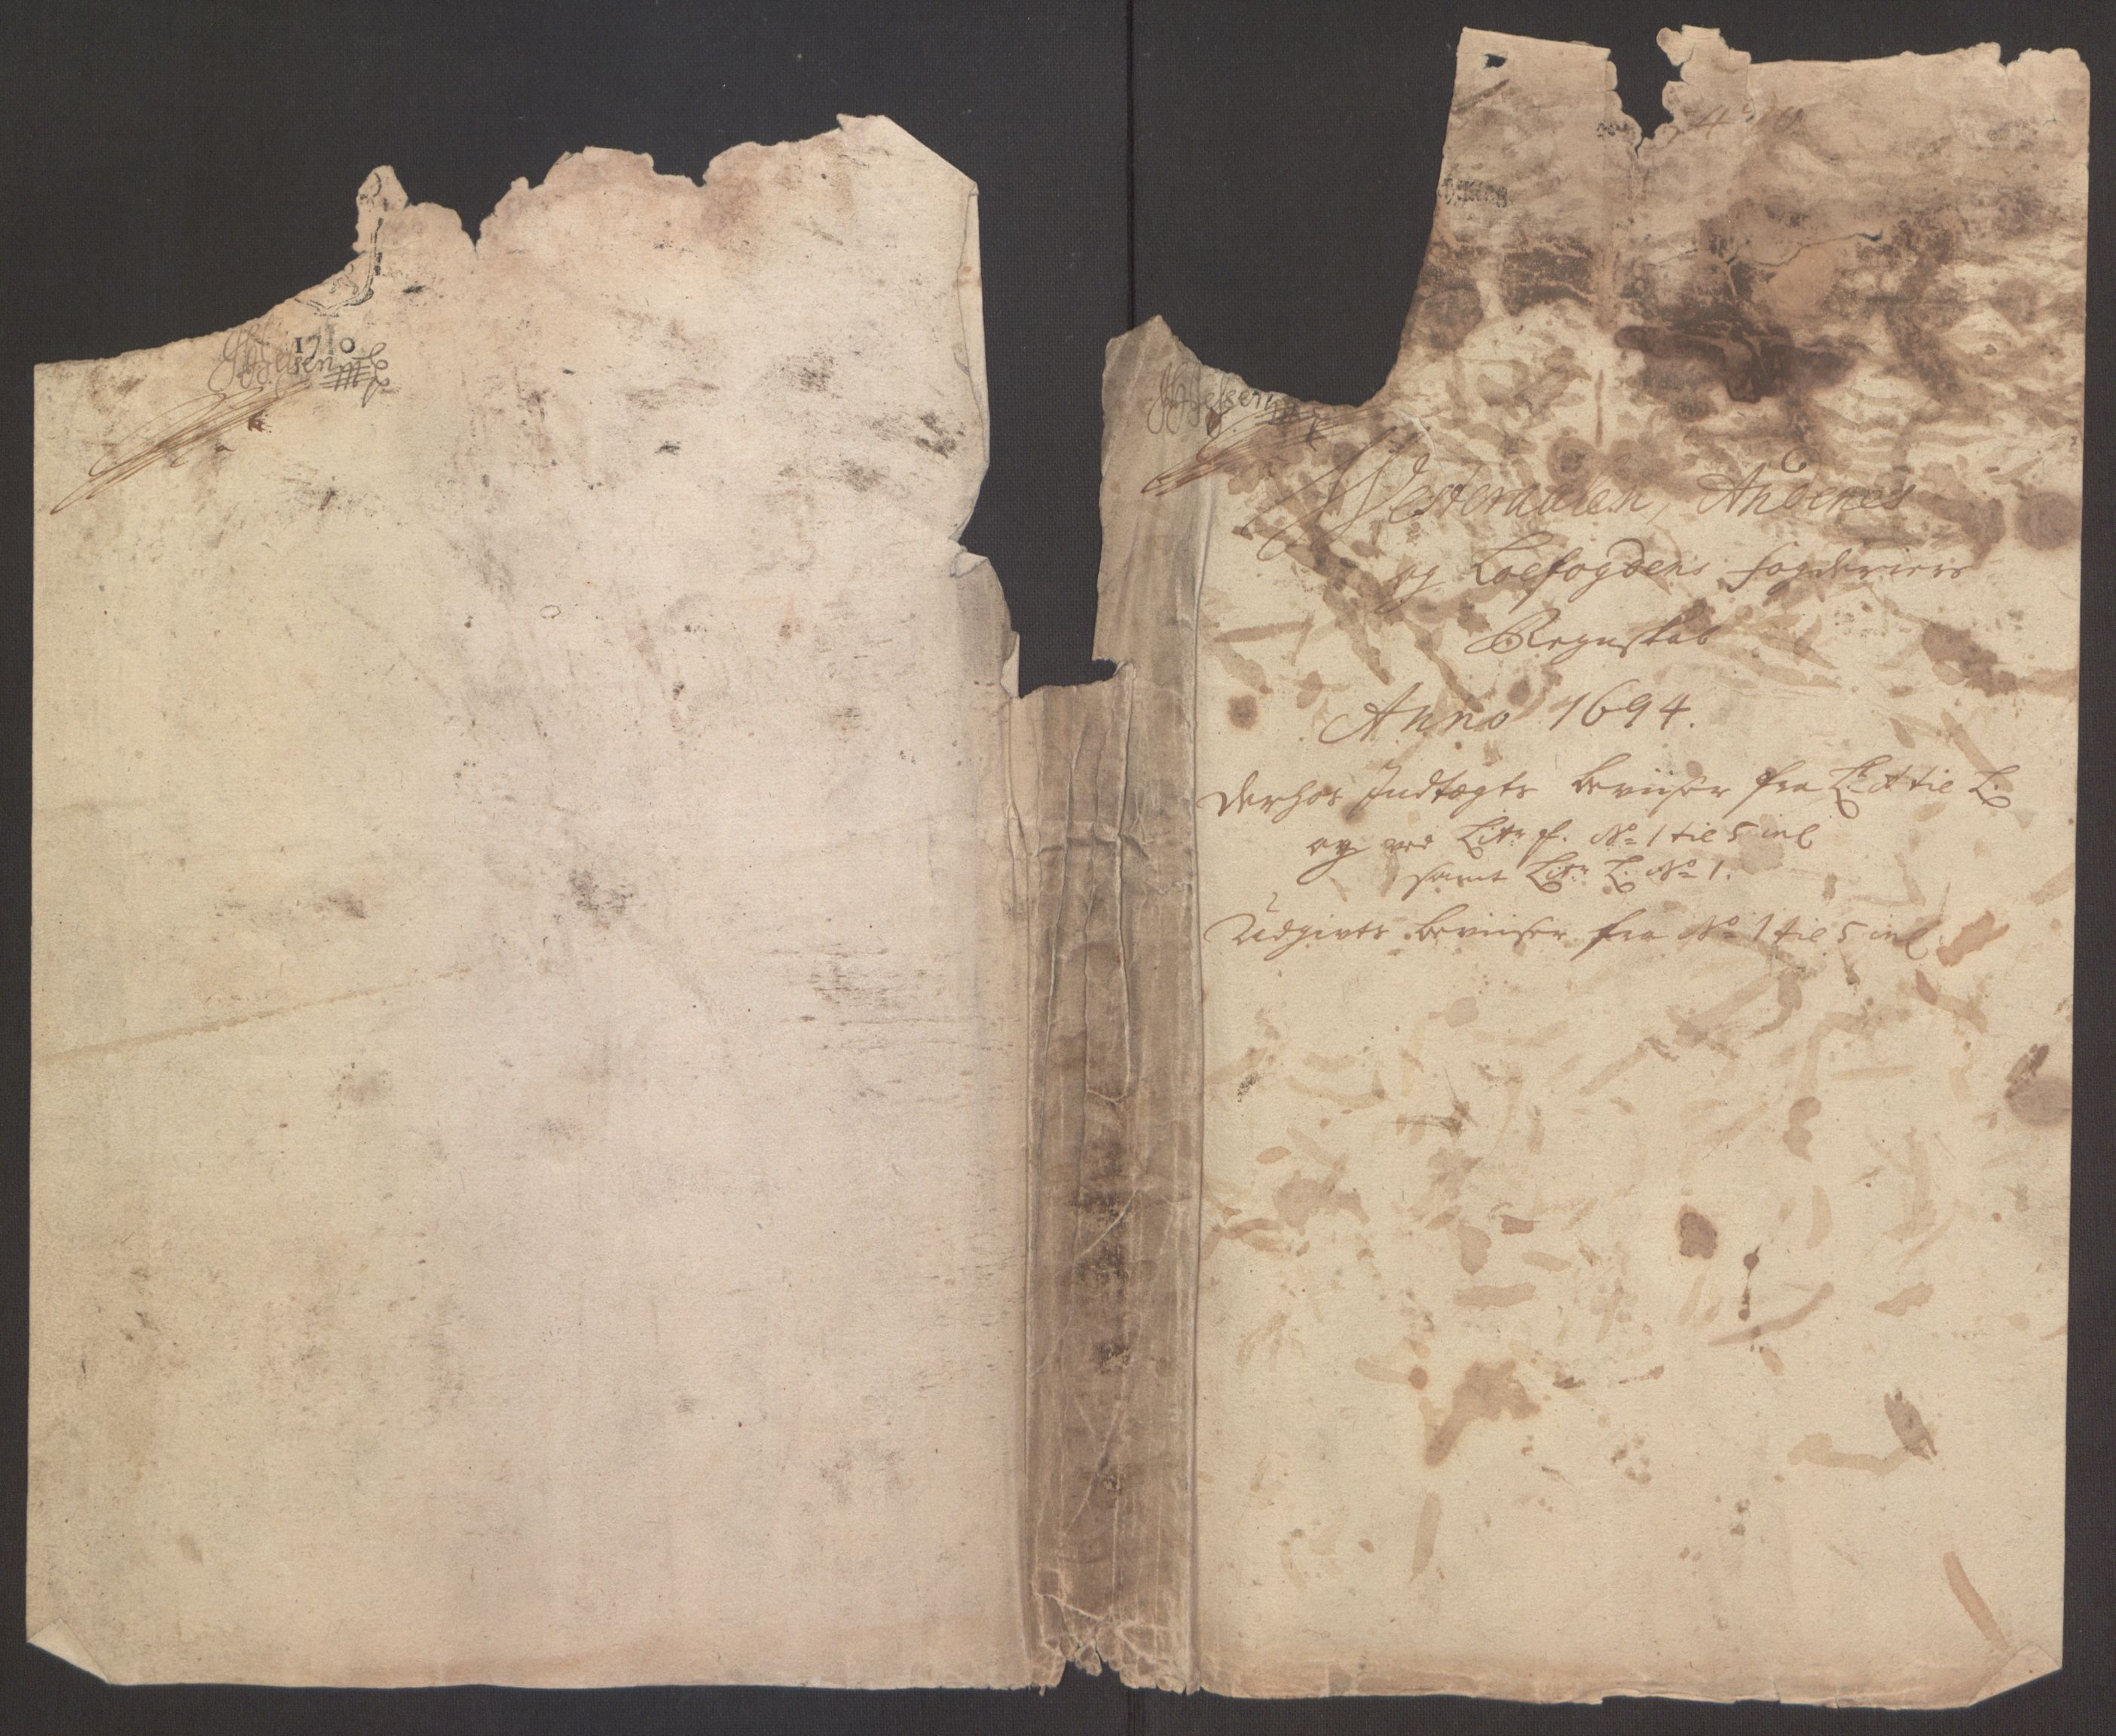 1710
Westeraalen, Andenes
og Loefogdens fogderiers
Regnskab
Anno 1694.
Derhos Indtægts beviiser fra Lr A til L.
og ved Litr f. No 1 til 5 incl
samt Litr L. No 1.
Udgivts beviiser fra No 1 til 5 incl